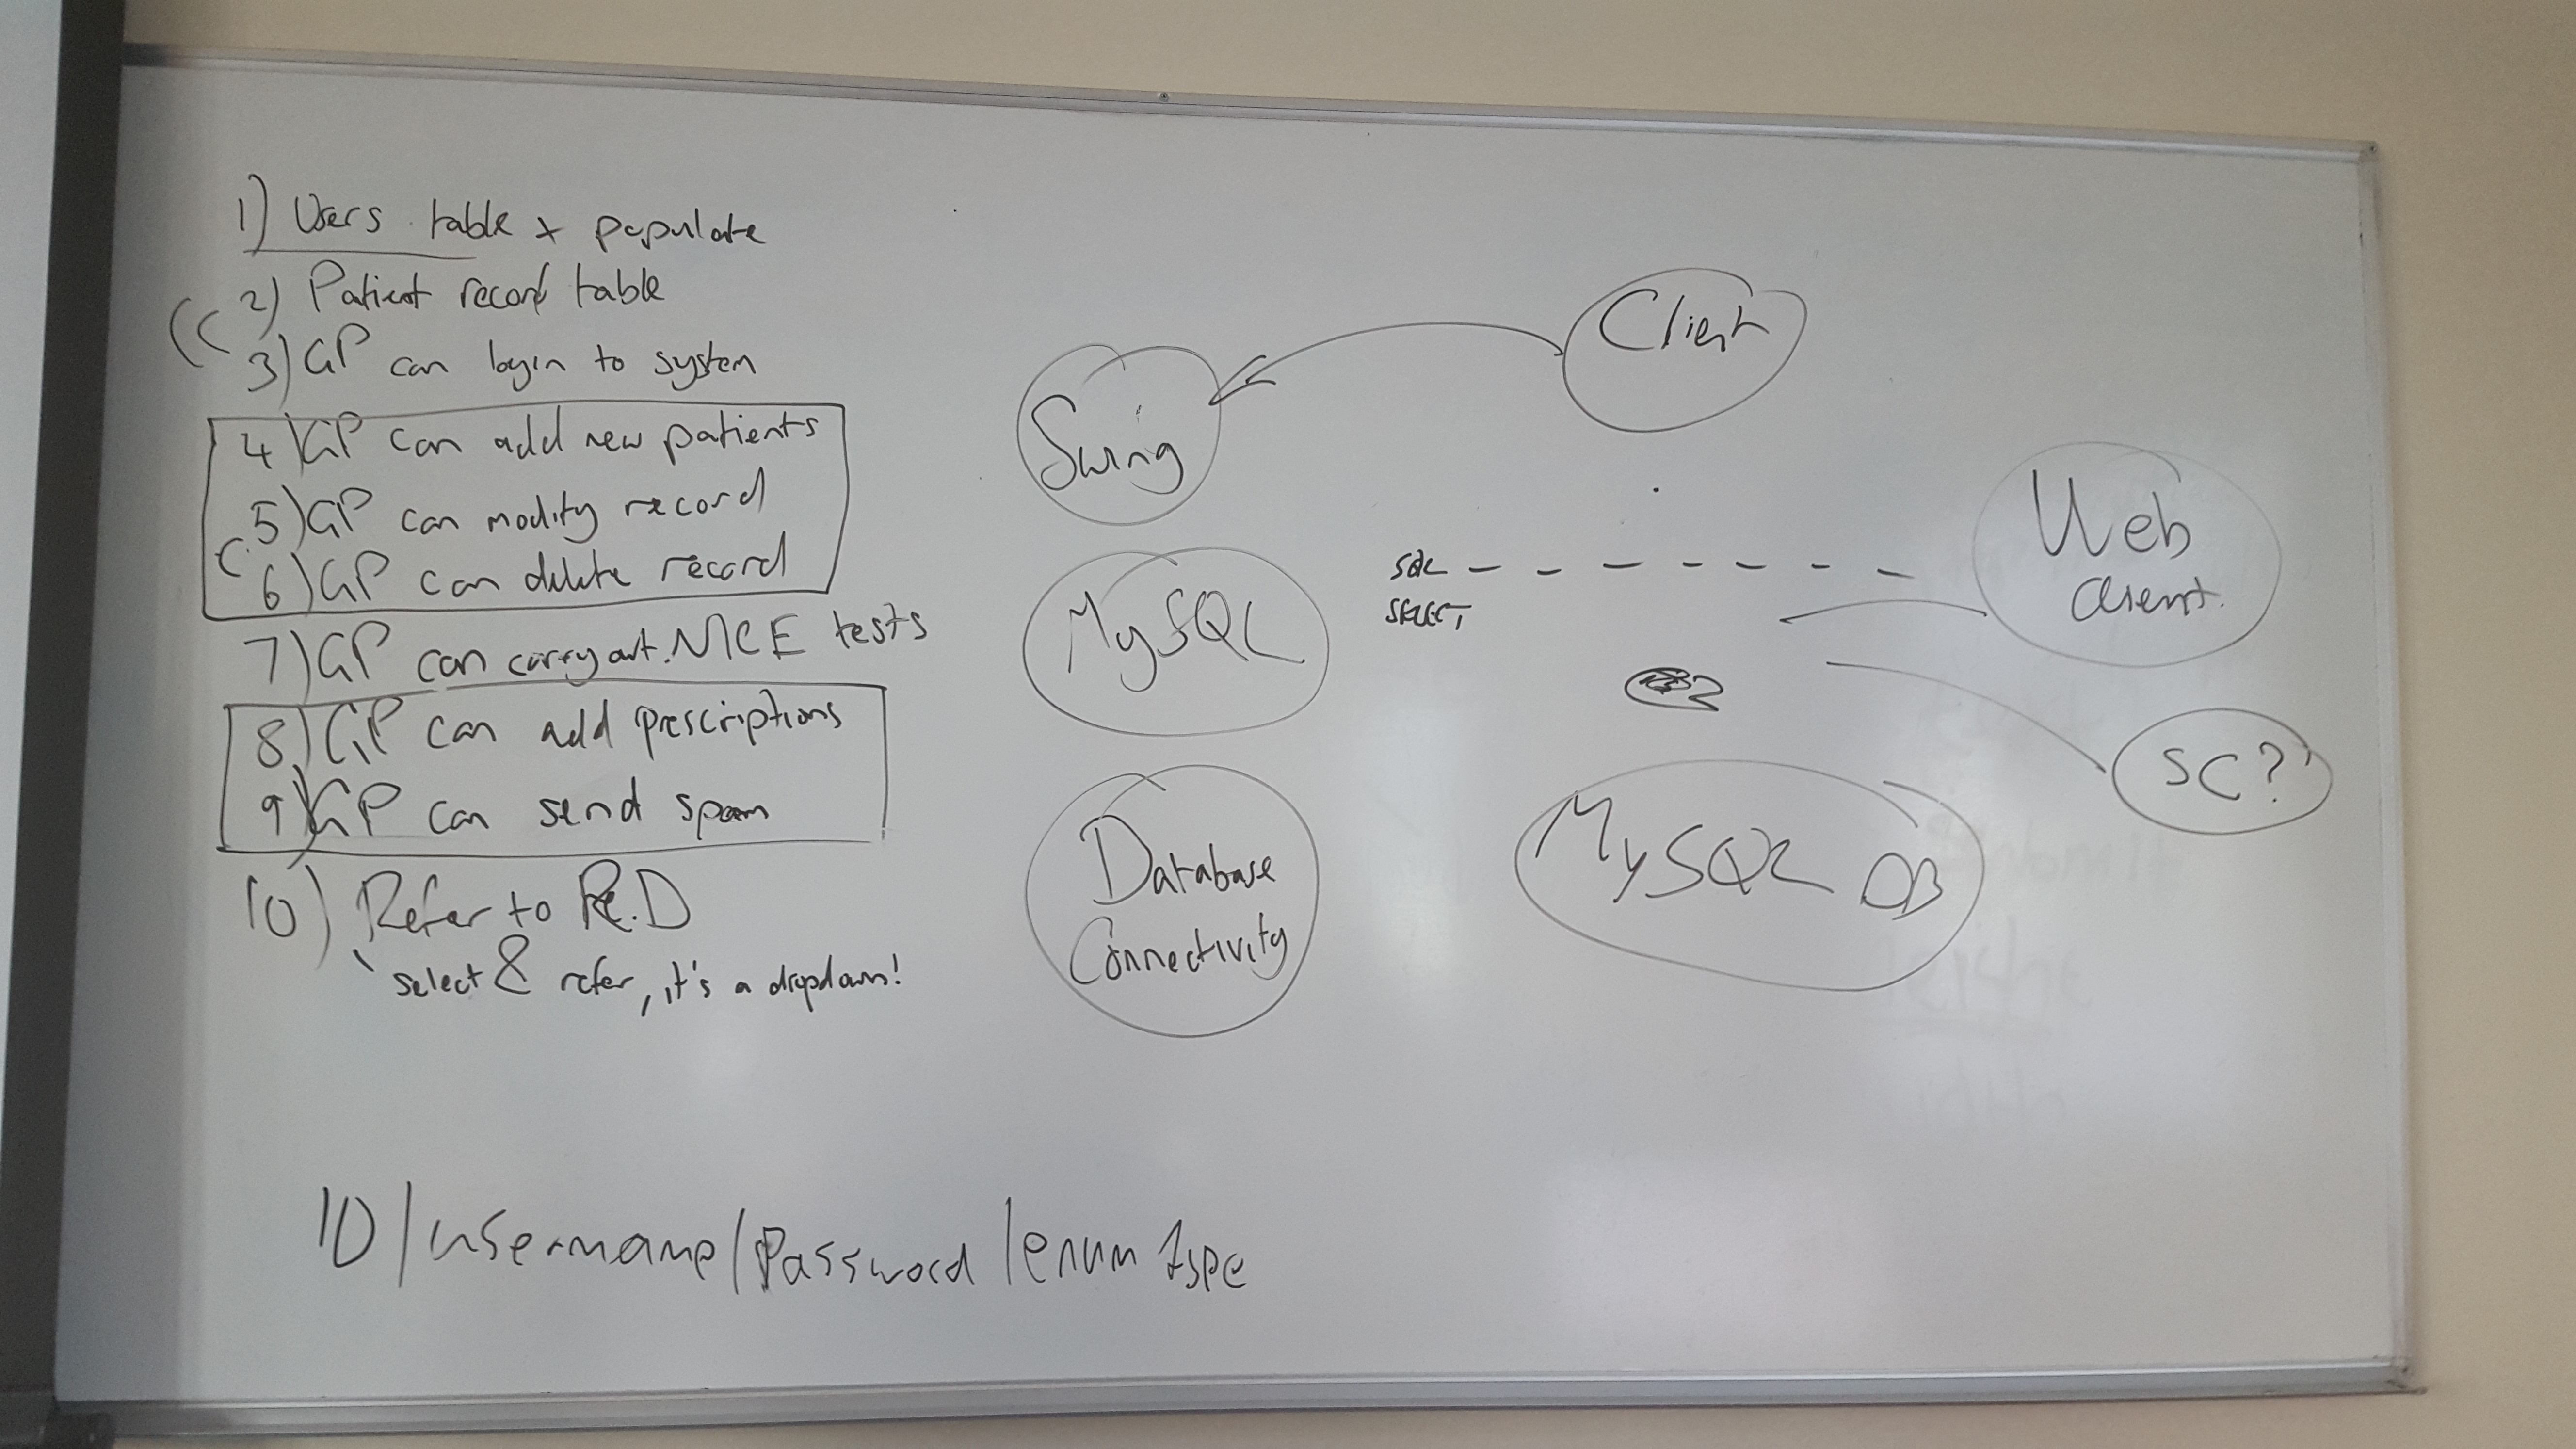 1) Users table + populate
2) Patient record table
3) GP can login to system
4) GP can add new patients
5) GP can modify record
6) GP can delete record
7) GP can carry out NICE tests
8) GP can add prescriptions
9) GP can send spam
10) Refer to R.D
select & refer, it's a dropdown!
Client
Swing
Web
Client.
SQL
SELECT
MySQL
SC?
Database
Connectivity
MySQL DB
ID/username/Password/enum type